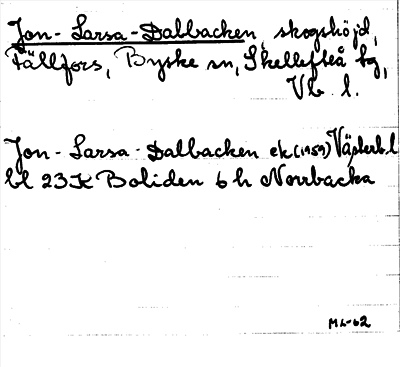 Jon-Larsa-Dalbacken, skogshöjd,
Fällfors, Byske sn, Skellefteå tg,
Vb. l.
Jon-Larsa-Dalbacken ek (1959) Västerb. l
bl 23K Boliden 6 h Norrbacka
ML-62